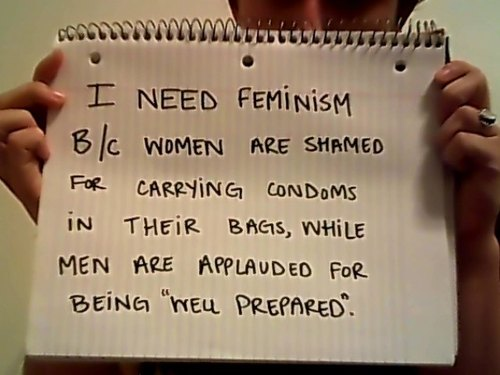 I NEED FEMINISM
B/C WOMEN ARE SHAMED
FOR CARRYING CONDOMS
IN THEIR BAGS, WHILE
MEN ARE APPLAUDED FOR
BEING "WELL PREPARED".